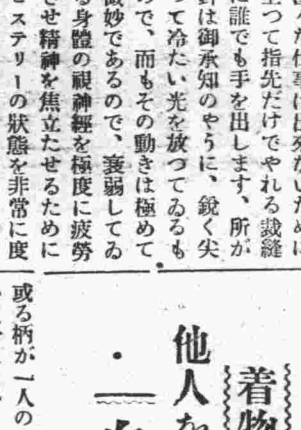 立つて指先だけでやれる裁縫
に誰でも手を出します、所が
針は御承知のやうに、鋭く尖
つて冷たい光を放つてゐるも
ので、而もその動きは極めて
微妙であるので、衰弱してゐ
る身體の視神經を極度に疲勞
させ精神を焦立たせるために
ヒステリーの狀態を非常に度
着物
他人を
或る柄が一人の